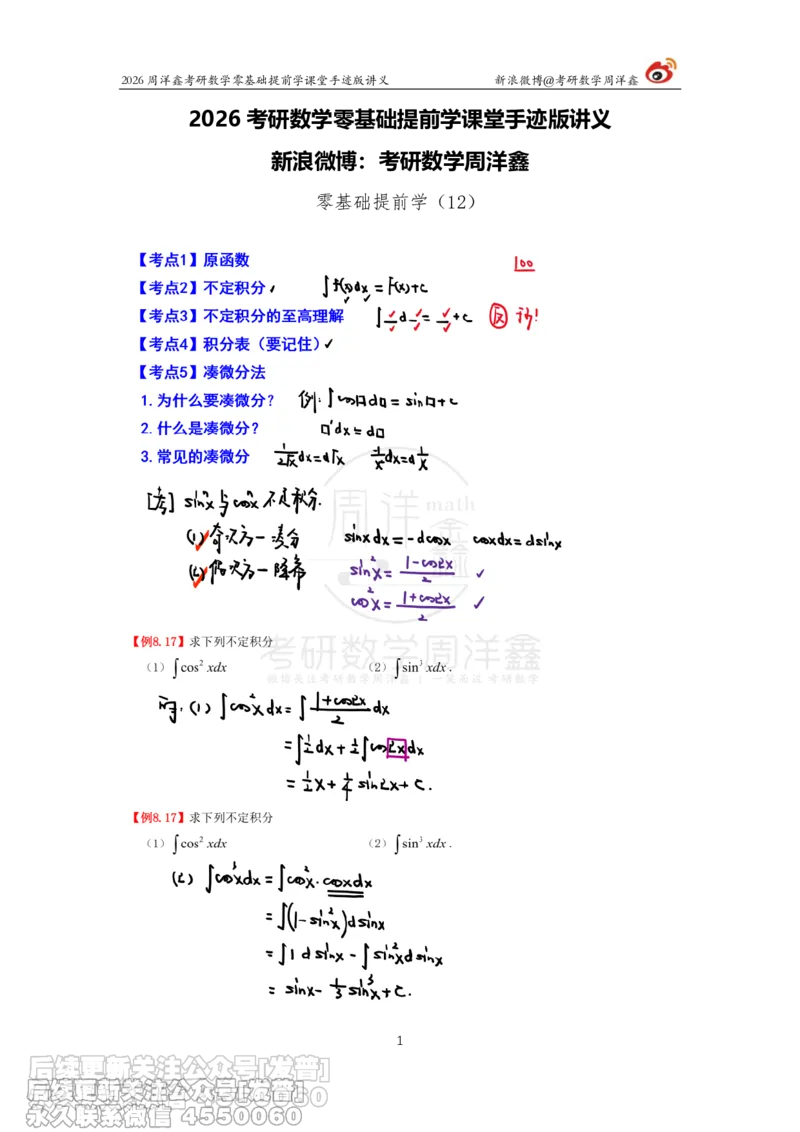 2026周洋鑫考研数学零基础提前学课堂手迹版讲义 新浪微博@考研数学周洋鑫
2026 考研数学零基础提前学课堂手迹版讲义
新浪微博：考研数学周洋鑫
零基础提前学（12）
【考点1】原函数 100
【考点2】不定积分 ∫f(x)dx = F(x)+C
【考点3】不定积分的至高理解 ∫_d_=_+C 反 诗!
【考点4】积分表（要记住）✓
【考点5】凑微分法
1.为什么要凑微分？ 例: ∫cos□d□ = sin□+C
2.什么是凑微分？ □'dx = d□
3.常见的凑微分 1/(2√x) dx = d√x 1/x dx = d 1/x
周洋鑫math
[考] sinⁿx与cosⁿx不定积分.
(1) 奇次方一凑分 sinxdx = -dcosx cosxdx = dsinx
(2) 偶次方一降幂 sin²x = (1-cos2x)/2 ✓
cos²x = (1+cos2x)/2 ✓
考研数学周洋鑫
【例8.17】求下列不定积分
（1）∫cos² xdx （2）∫sin³ xdx .
(1) ∫cos²xdx = ∫(1+cos2x)/2 dx
= ∫1/2 dx + 1/2 ∫cos2xdx
= 1/2 x + 1/4 sin2x + C.
【例8.17】求下列不定积分
（1）∫cos² xdx （2）∫sin³ xdx .
(2) ∫cos³xdx = ∫cos²x·cosxdx
= ∫(1-sin²x)dsinx
= ∫1dsinx - ∫sin²xdsinx
= sinx - 1/3 sin³x + C.
1
后续更新关注公众号[发普]
后续更新关注公众号[发普]
永久联系微信 4550060